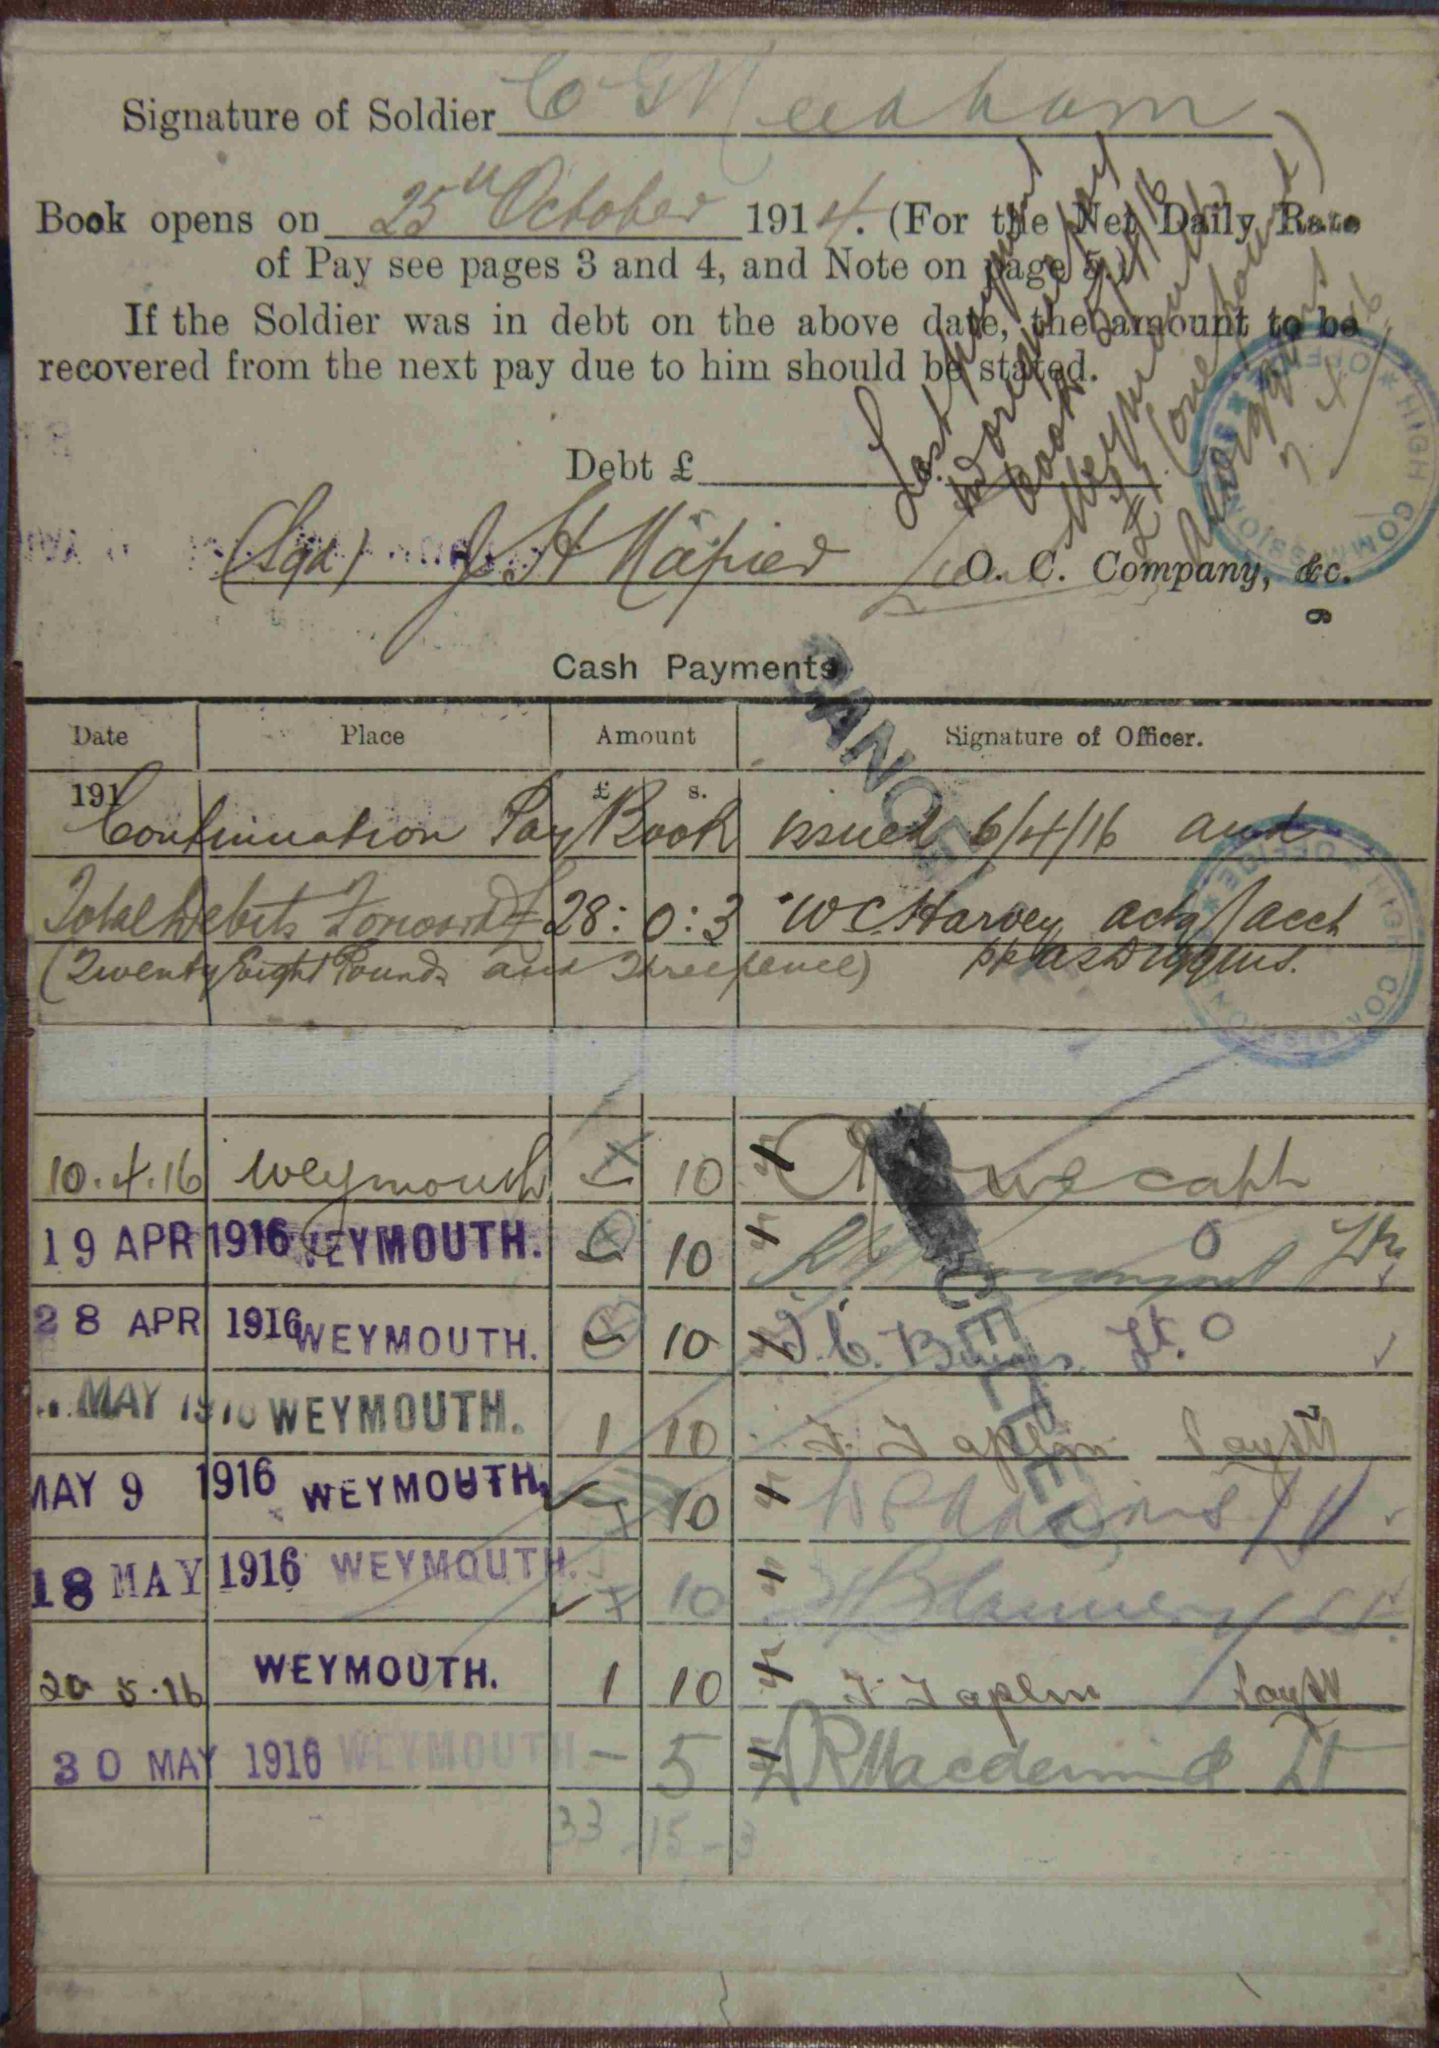 Signature of Soldier C G Meedham
Book opens on 25th October 1914. (For the Net Daily Rate
of Pay see pages 3 and 4, and Note on page 5.)
If the Soldier was in debt on the above date, the amount to be
recovered from the next pay due to him should be stated.
Debt £
(Sgd) J H Napier O. C. Company, &c.
6
Last payment
book
Weymouth
£1 (one pound)
HIGH COMMISSIONER'S OFFICE
Cash Payments
CANCELLED
Date Place Amount Signature of Officer.
191 £ s.
Continuation Pay Book issued 6/4/16 and
Total Debits Forward £28 : 0 : 3 W C Harvey actg/acct
(Twenty Eight Pounds and Threepence)
HIGH COMMISSIONER'S OFFICE
CANCELLED
10.4.16 Weymouth 10 capt
19 APR 1916 WEYMOUTH. 10
28 APR 1916 WEYMOUTH. 10 Lt.
MAY 1916 WEYMOUTH. 1 10 T. Taplin
MAY 9 1916 WEYMOUTH. 10
18 MAY 1916 WEYMOUTH. 10 Lt.
20 5.16 WEYMOUTH. 1 10 T. Taplin
30 MAY 1916 WEYMOUTH. – 5 Macdermid Lt
33 - 15 - 3